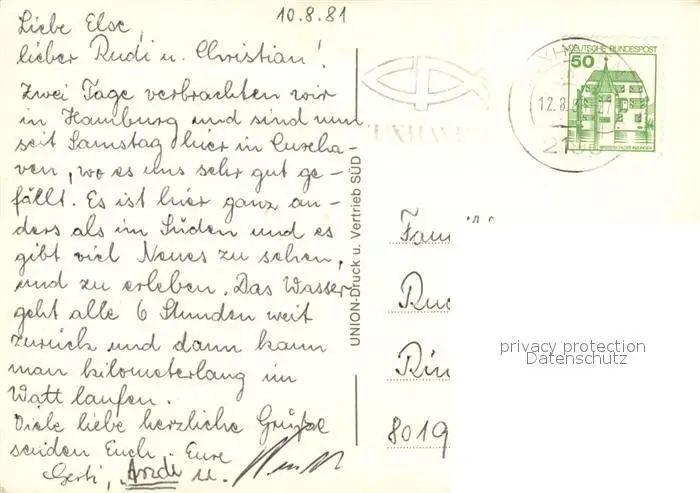 10.8.81
Liebe Else,
lieber Rudi u. Christian!
Zwei Tage verbrachten wir
in Hamburg und sind nun
seit Samstag hier in Cuxha-
ven, wo es uns sehr gut ge-
fällt. Es ist hier ganz an-
ders als im Süden und es
gibt viel Neues zu sehen,
und zu erleben. Das Wasser
geht alle 6 Stunden weit
zurück und dann kann
man kilometerlang im
Watt laufen.
Viele liebe herzliche Grüße
senden Euch. Eure
Gerti, u.
UNION-Druck u. Vertrieb SÜD
DEUTSCHE BUNDESPOST
50
12.8.
Fam
Rud
Rin
8019
privacy protection
Datenschutz